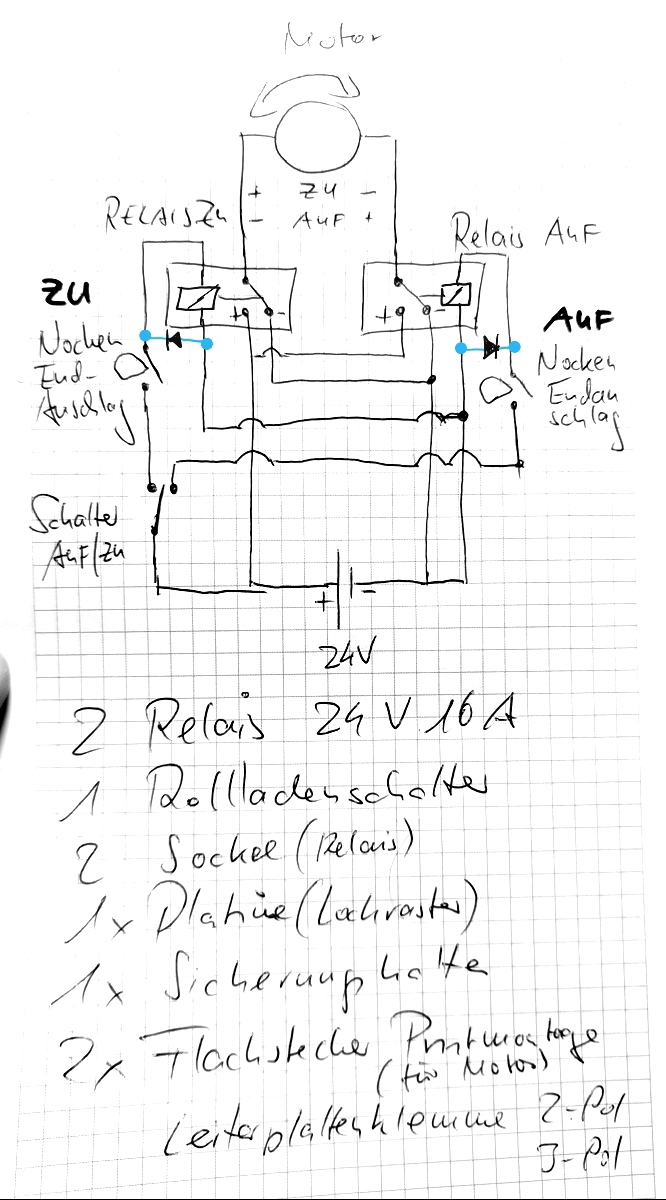 Motor
+ ZU -
- AUF +
RELAIS ZU
Relais AUF
ZU
+ -
+ -
AUF
Nocken
End-
Anschlag
Nocken
Endan
schlag
Schalter
AUF/ZU
+ -
24V
2 Relais 24 V 16 A
1 Rollladenschalter
2 Sockel (Relais)
1x Platine (Lochraster)
1x Sicherunghalte
2x Flachstecker Printmontage
(für Motor)
Leiterplattenklemme 2-Pol
3-Pol